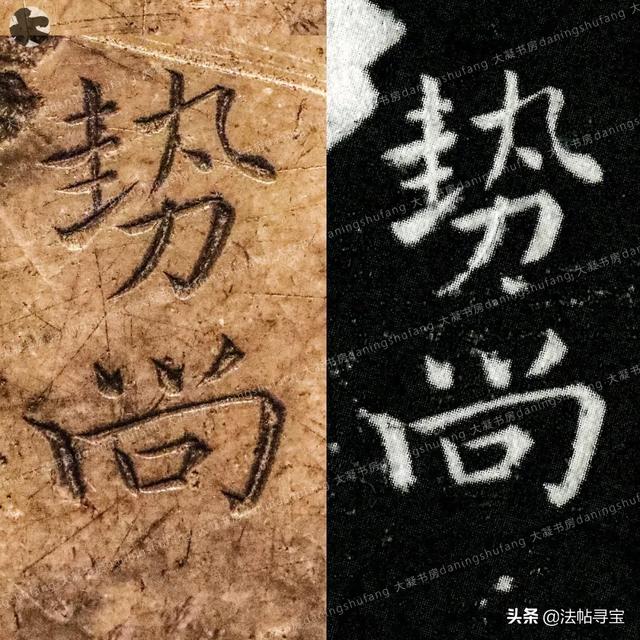 势
尚
势
尚
大䨻书房daningshufang
头条 @法帖寻宝